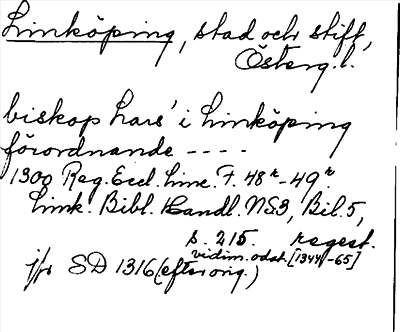 Linköping, stad och stift,
Österg.l.
biskop Lars' i Linköping
förordnande ----
1300 Reg. Eccl. Linc. F. 48r-49r.
Link. Bibl. Handl. NS3, Bil. 5,
s. 215. regest.
vidim. odat. [1344-65]
jfr SD 1316 (efter orig.)